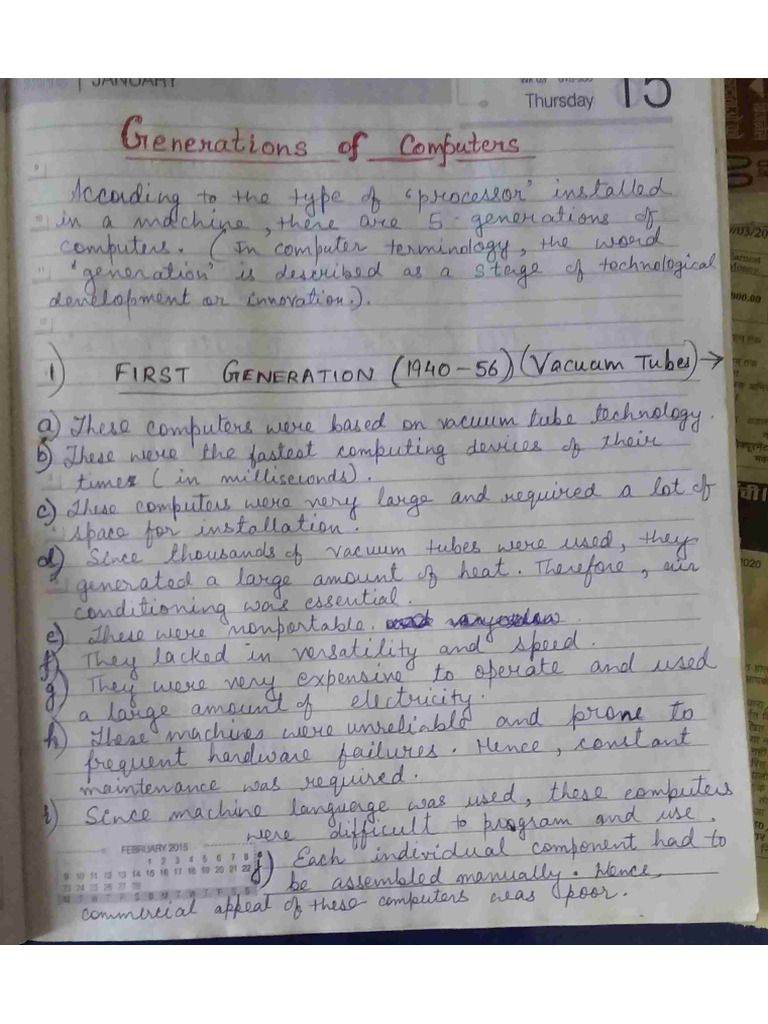 JANUARY
Thursday 15
Generations of Computers
According to the type of 'processor' installed
in a machine, there are 5 generations of
computers. (In computer terminology, the word
'generation' is described as a stage of technological
development or innovation.).
1) FIRST GENERATION (1940-56) (Vacuam Tubes)→
a) These computers were based on vacuum tube technology.
b) These were the fastest computing devices of their
times (in milliseconds).
c) These computers were very large and required a lot of
space for installation.
d) Since thousands of vacuum tubes were used, they
generated a large amount of heat. Therefore, air
conditioning was essential.
e) These were nonportable.
f) They lacked in versatility and speed.
g) They were very expensive to operate and used
a large amount of electricity.
h) These machines were unreliable and prone to
frequent hardware failures. Hence, constant
maintenance was required.
i) Since machine language was used, these computers
were difficult to program and use.
FEBRUARY 2015
1 2 3 4 5 6 7 8
9 10 11 12 13 14 15 16 17 18 19 20 21 22
23 24 25 26 27 28
j) Each individual component had to
be assembled manually. Hence,
commercial appeal of these computers was poor.